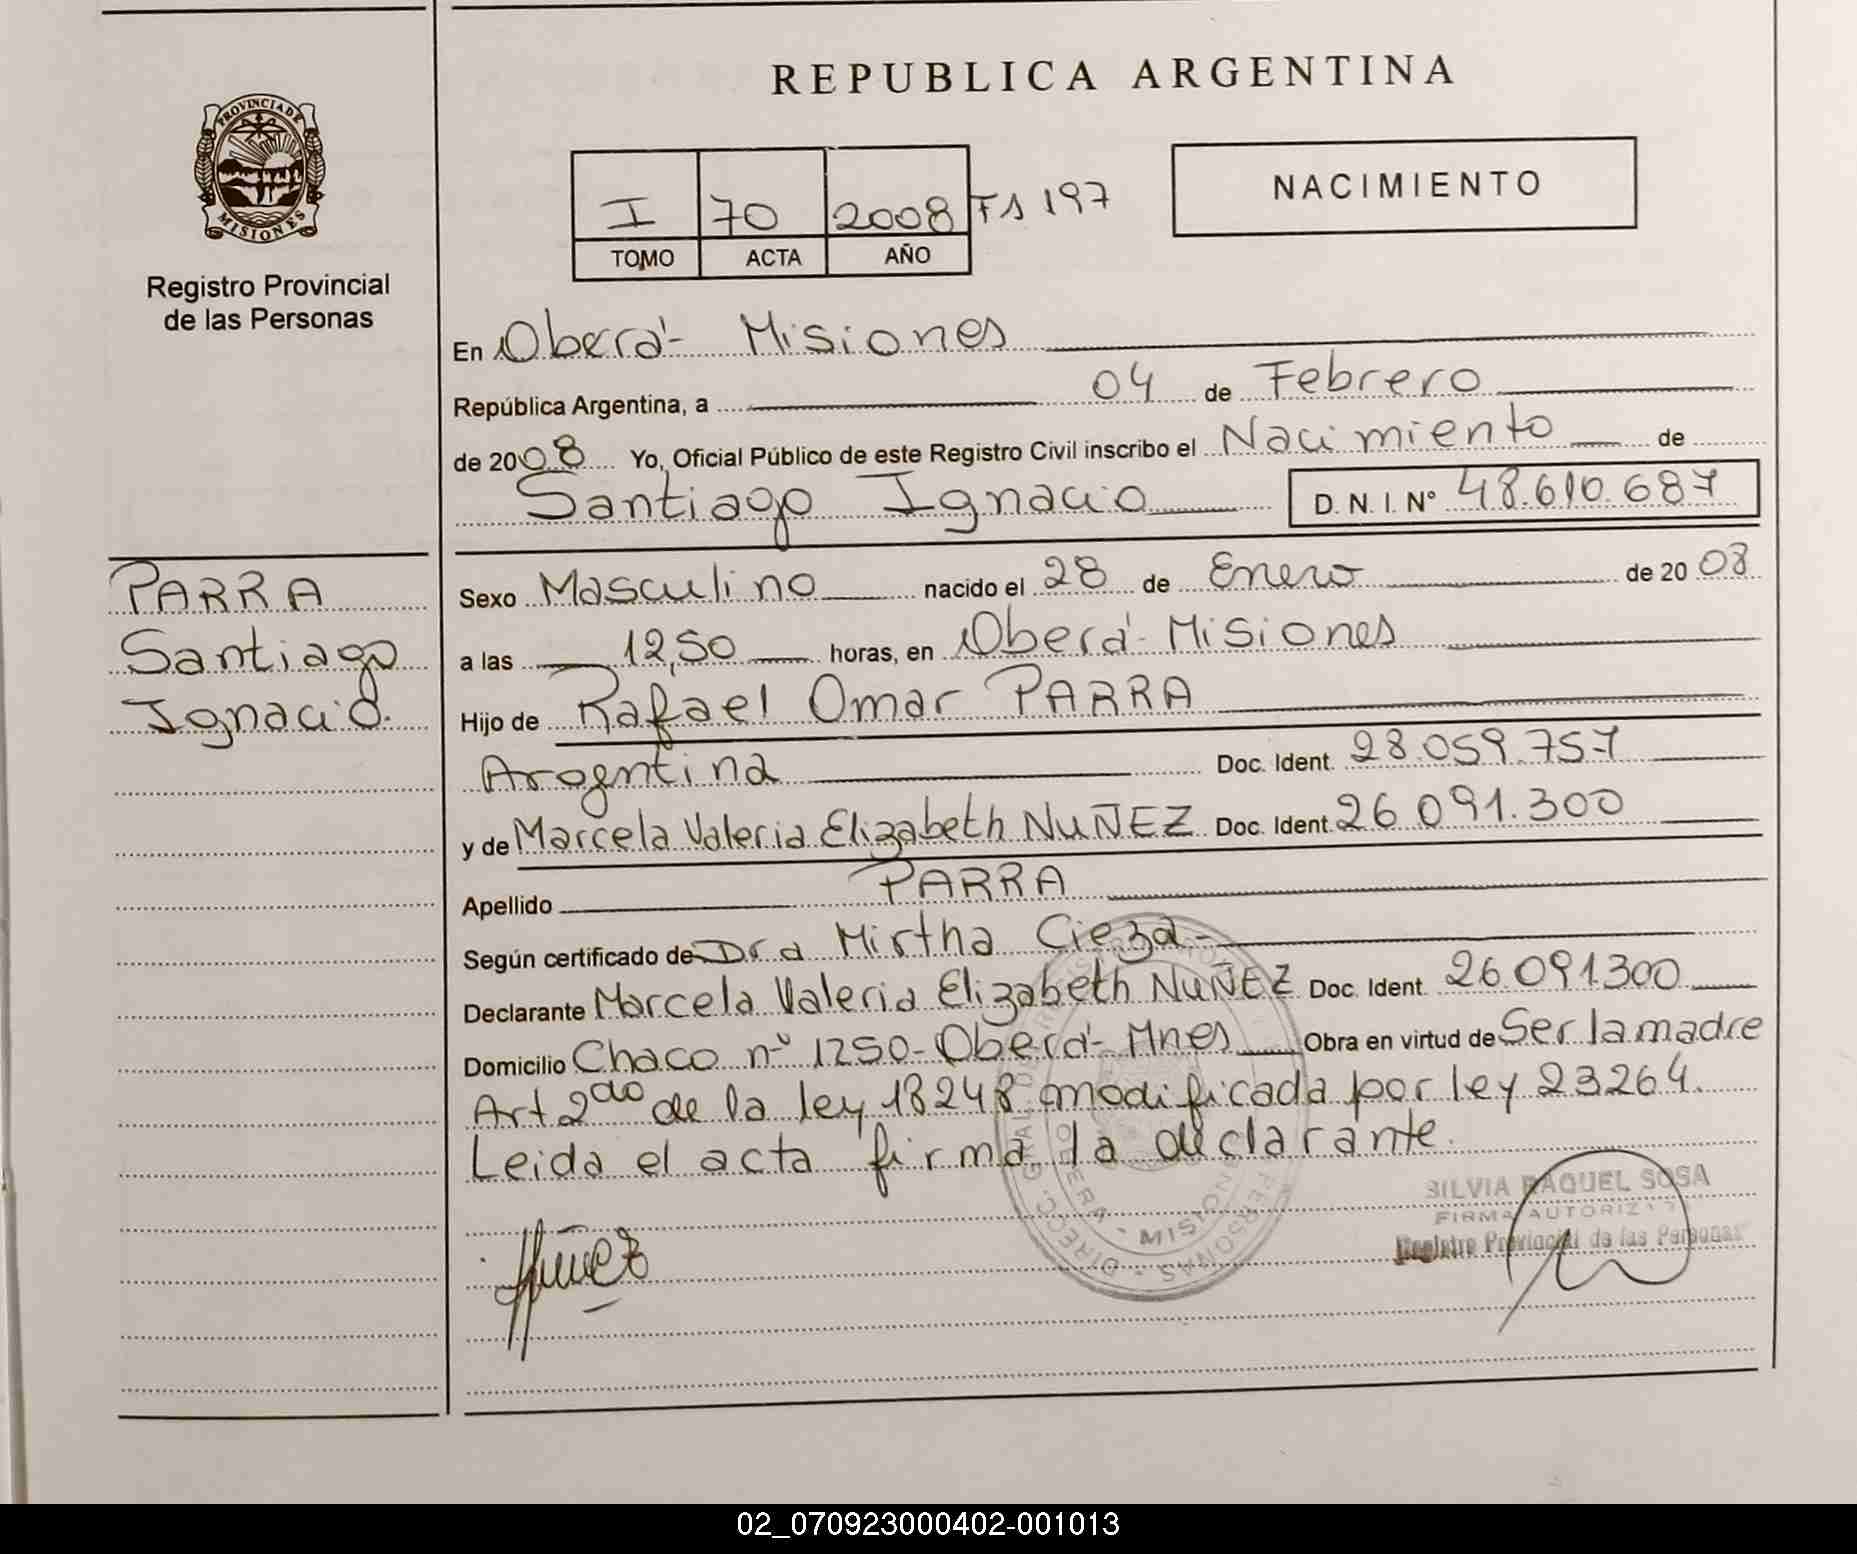 REPUBLICA ARGENTINA
PROVINCIA DE
MISIONES
Registro Provincial
de las Personas
I 70 2008 Fs 197
TOMO ACTA AÑO
NACIMIENTO
En Oberá- Misiones
República Argentina, a 04 de Febrero
de 2008 Yo, Oficial Público de este Registro Civil inscribo el Nacimiento de
Santiago Ignacio D. N. I. N° 48.610.687
PARRA
Santiago
Ignacio.
Sexo Masculino nacido el 28 de Enero de 2008
a las 12,50 horas, en Oberá- Misiones
Hijo de Rafael Omar PARRA
Argentina Doc. Ident. 28.059.757
y de Marcela Valeria Elizabeth NUÑEZ Doc. Ident. 26.091.300
Apellido PARRA
Según certificado de Dra Mirtha Cieza-
Declarante Marcela Valeria Elizabeth NUÑEZ Doc. Ident. 26.091.300
Domicilio Chaco nº 1250- Oberá- Mnes Obra en virtud de Ser la madre
Art 2do de la ley 18248 modificada por ley 23264.
Leida el acta firma la declarante.
SILVIA RAQUEL SOSA
FIRMA AUTORIZ
Registro Provincial de las Personas
Nuñez
MISIONES
PERSONAS
02_070923000402-001013